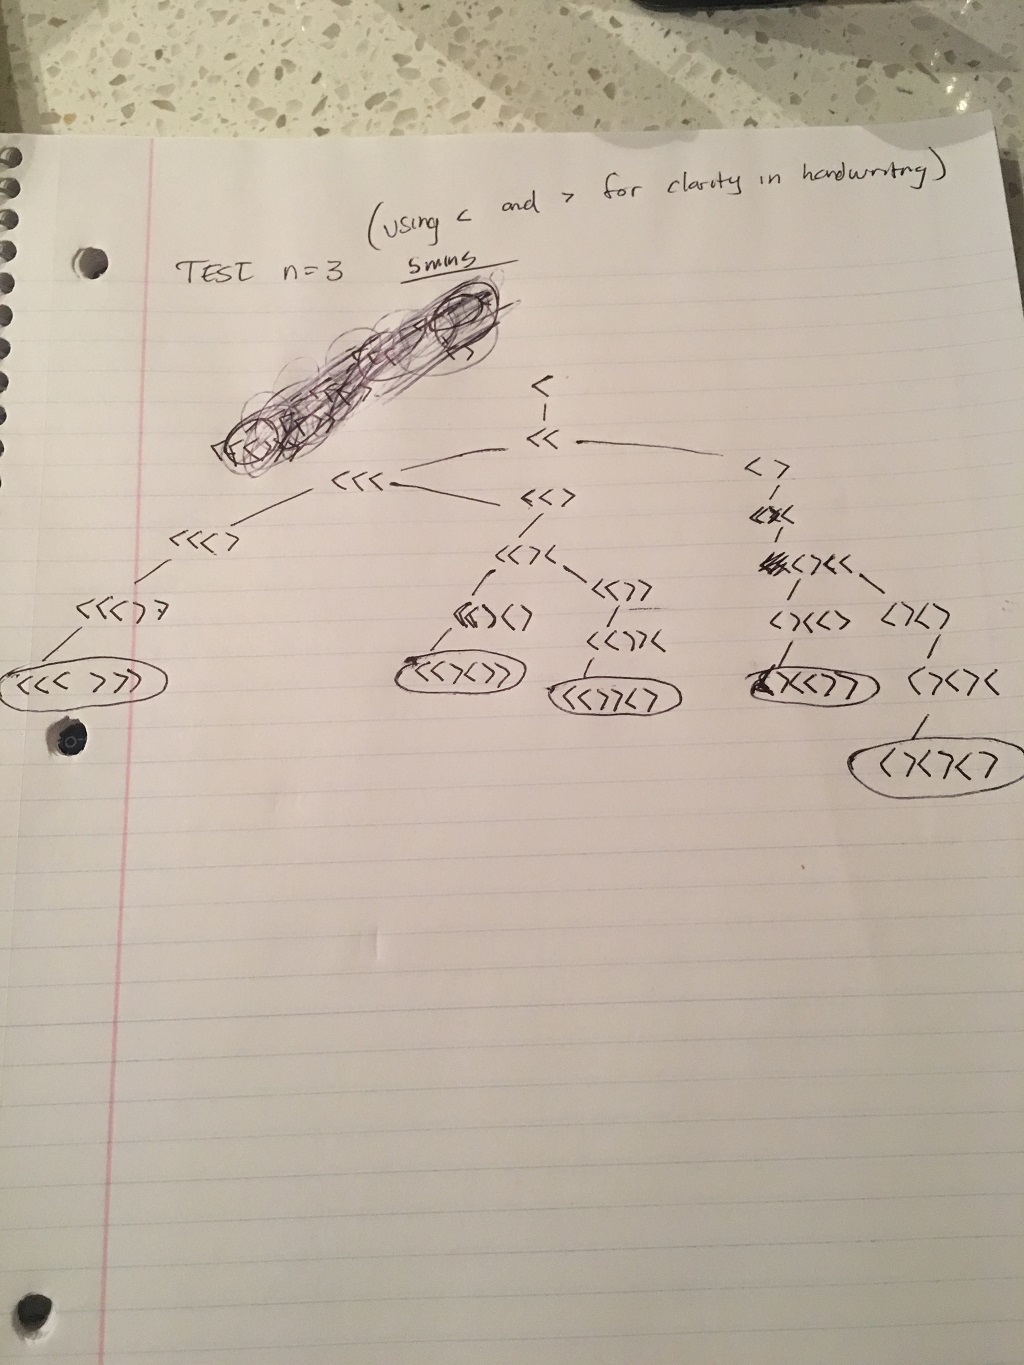 (using < and > for clarity in handwritng)
TEST n=3 5mins
<
<<
<<< <>
<<>
<<<> <><
<<>< <><<
<<>>
<<<>> <<><> <><<> <><>
<<>><
<<<>>> <<><>> <<>><> <><<>> <><><
<><><>